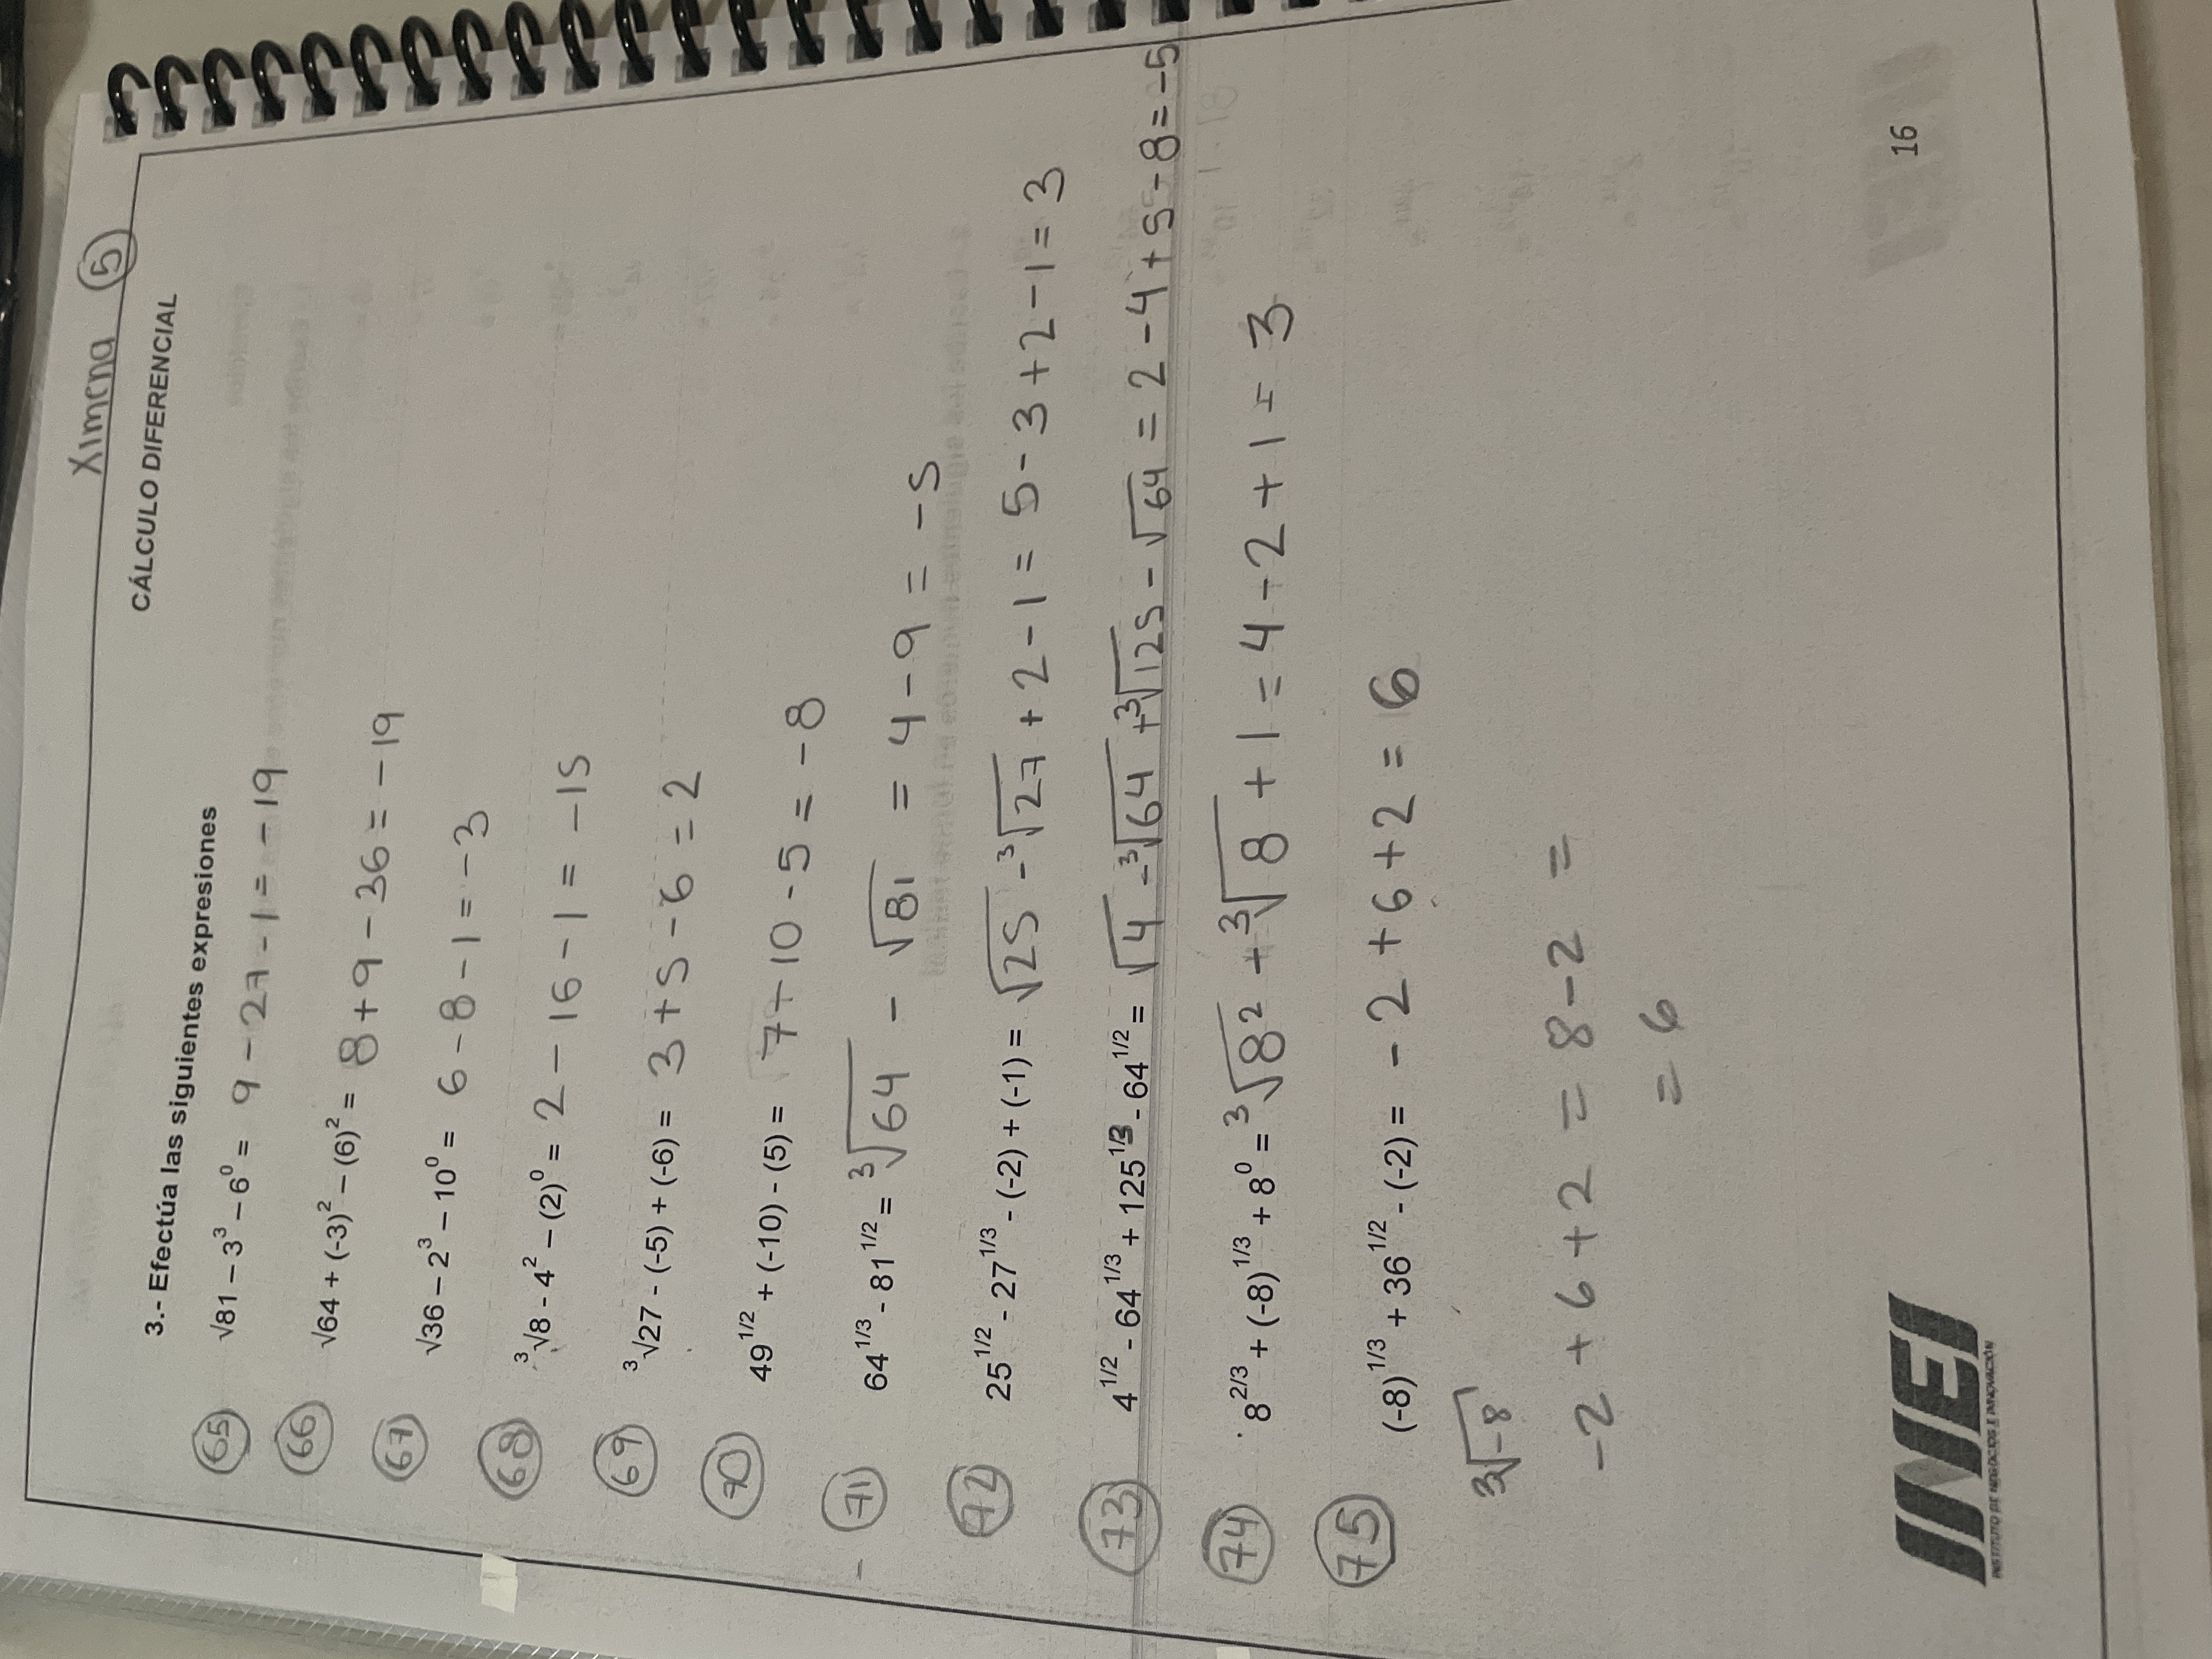 Ximena ⑤
CÁLCULO DIFERENCIAL
3.- Efectúa las siguientes expresiones
65 √81 – 3³ – 6⁰ = 9 - 27 - 1 = - 19
66 √64 + (-3)² – (6)² = 8 + 9 - 36 = - 19
67 √36 – 2³ – 10⁰ = 6 - 8 - 1 = - 3
68 ³√8 - 4² – (2)⁰ = 2 - 16 - 1 = - 15
69 ³√27 - (-5) + (-6) = 3 + 5 - 6 = 2
70 49^1/2 + (-10) - (5) = 7 + 10 - 5 = - 8
71 64^1/3 - 81^1/2 = ³√64 - √81 = 4 - 9 = - 5
72 25^1/2 - 27^1/3 - (-2) + (-1) = √25 - ³√27 + 2 - 1 = 5 - 3 + 2 - 1 = 3
73 4^1/2 - 64^1/3 + 125^1/3 - 64^1/2 = √4 - ³√64 + ³√125 - √64 = 2 - 4 + 5 - 8 = - 5
74 8^2/3 + (-8)^1/3 + 8⁰ = ³√8² + ³√8 + 1 = 4 - 2 + 1 = 3
75 (-8)^1/3 + 36^1/2 - (-2) = - 2 + 6 + 2 = 6
³√-8
- 2 + 6 + 2 = 8 - 2 =
= 6
INEI
INSTITUTO DE NEGOCIOS E INNOVACIÓN
16